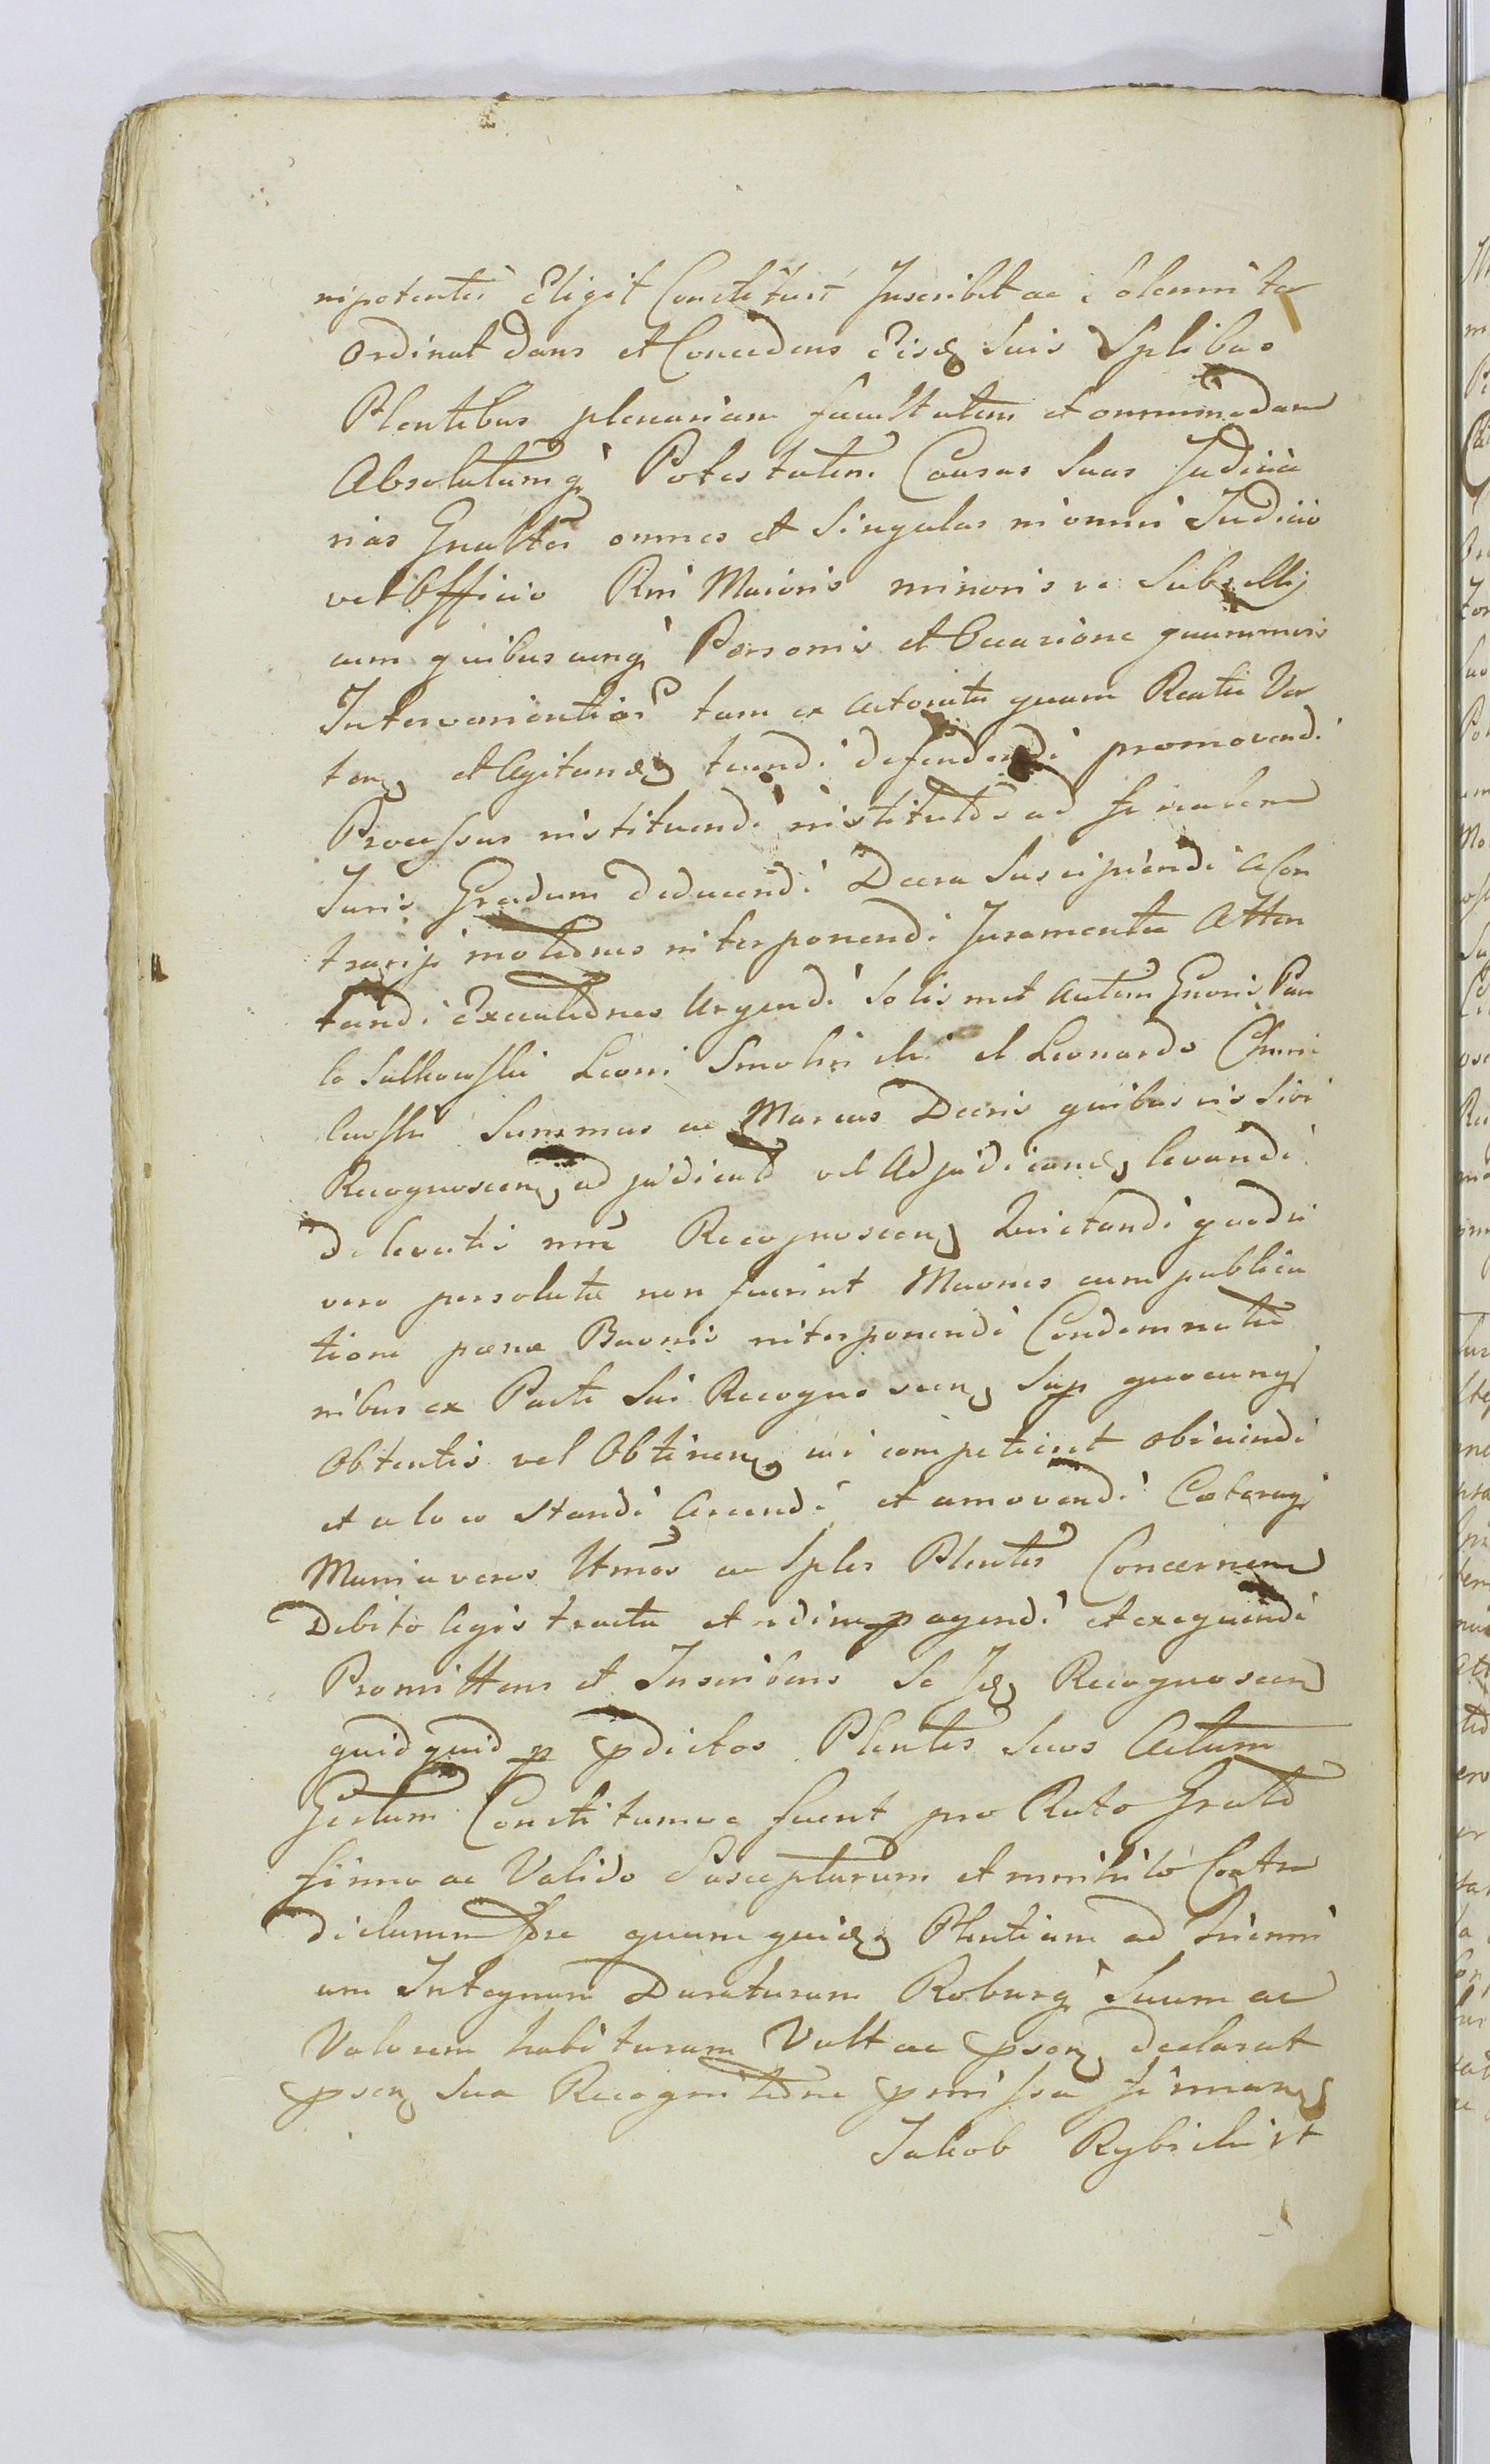 nipotentes Eligit Constituit Inscribit ac Solemniter
Ordinat Dans et Concedens Eisd Suis Splibus
Plentibus plenariam facultatem et omnimodam
Absolutamq Potestatem Causas Suas Judicia
rias Gnaltes omnes et Singulas in omni Judicio
vel Officio Rni Maioris minoris ve Subsellij
cum quibuscunq Personis et Occasione quarumvis
Intervenientias tam ex Actoratu quam Reatu Ver
ten et Agitand tuendi defendendi promovendi
Processus instituendi institutos ad finalem
Juris Gradum deducendi Decra Suscipiendi a Con
trarijs motiones interponendi Juramenta Atten
tandi Executiones Urgendi Solismet autem Gnoris Pau
lo Sulkowski Leoni Smolin ski et Leonardo Chmie
lewski Summas ac Marcas Decris quibusvis Sibi
Recognoscen adjudicat vel Adjudicand levandi
de levatis nne Recognoscen Quietandi quodsi
vero persoluta non fuerint Maones cum publica
tione pœnæ Baonis interponendi Condemnatio
nibus ex Parte Sui Recognoscen Sup quocunq
Obtentis vel Obtinen uti competierit obviandi
et a loco standi Arcendi et amovendi Cæteraq
Munia veros Ltmos ac Sples Plentes Concernen
Debito legis tractu et ordine p agendi et exequendi
Promittens et Inscribens Se Id Recognoscen
quidquid p pdictos Plentes Suos Actum
Gestum Constitumve fuerit pro Rato Grato
firmo ac Valido Suscepturum et in nihilo Contra
dicturum fore quam quid Plentiam ad Trienni
um Integrum Duraturam Roburq Suum ac
Valorem habituram Vult ac psen declarat
psen Sua Recognitione pmissa firman
Jakob Rybicki